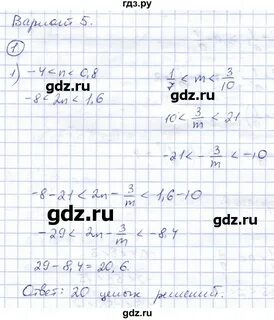 Вариант 5.
1
1) -4 < n < 0,8
-8 < 2n < 1,6
1/7 < m < 3/10
10 < 3/m < 21
-21 < -3/m < -10
-8-21 < 2n - 3/m < 1,6-10
-29 < 2n - 3/m < -8,4
29 - 8,4 = 20,6.
Ответ: 20 целых решений.
gdz.ru
gdz.ru
gdz.ru
gdz.ru
gdz.ru
gdz.ru